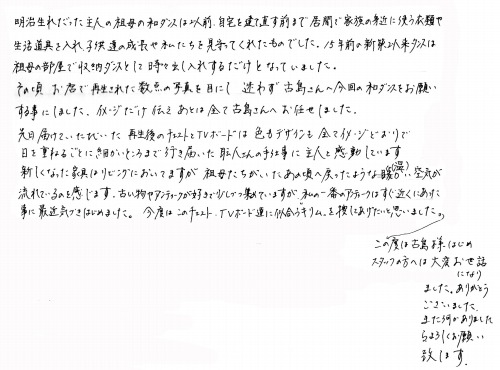 明治生れだった主人の祖母の和ダンスは2人前、自宅を建て直す前まで居間で家族の身近に使う衣類や
生活道具を入れ、子供達の成長や私たちを見守ってくれたものでした。15年前の新築以来タンスは
祖母の部屋で収納ダンスとして時々出し入れするだけとなっていました。
その頃 お店で再生された数点の写真を目にし 迷わず古島さんへ今回の和ダンスをお願い
する事にしました。イメージだけ伝え あとは全て古島さんへお任せしました。
先日届けていただいた 再生後のチェストとTVボードは 色もデザインも全てイメージどおりで
日を重ねるごとに細かいところまで行き届いた職人さんの手仕事に主人と感動しています
新しくなった家具はリビングにおいてますが 祖母たちがいたあの頃へ戻ったような暖(温)かい空気が
流れているのを感じます。古い物やアンティークが好きで少しづつ集めていますが、私の一番のアンティークはすぐ近くにあった
事に最近気づきはじめました。 今度はこのチェスト、TVボード達に似合う"キリム"を探してあげたいと思いました。
この度は古島様はじめ
スタッフの方々へは大変お世話
になり
ました。ありがとう
ございました。
また何かありました
らよろしくお願い
致します。